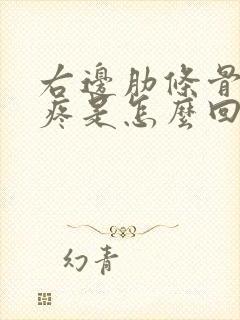 右邊肋條骨
疼是怎麼回
幻青